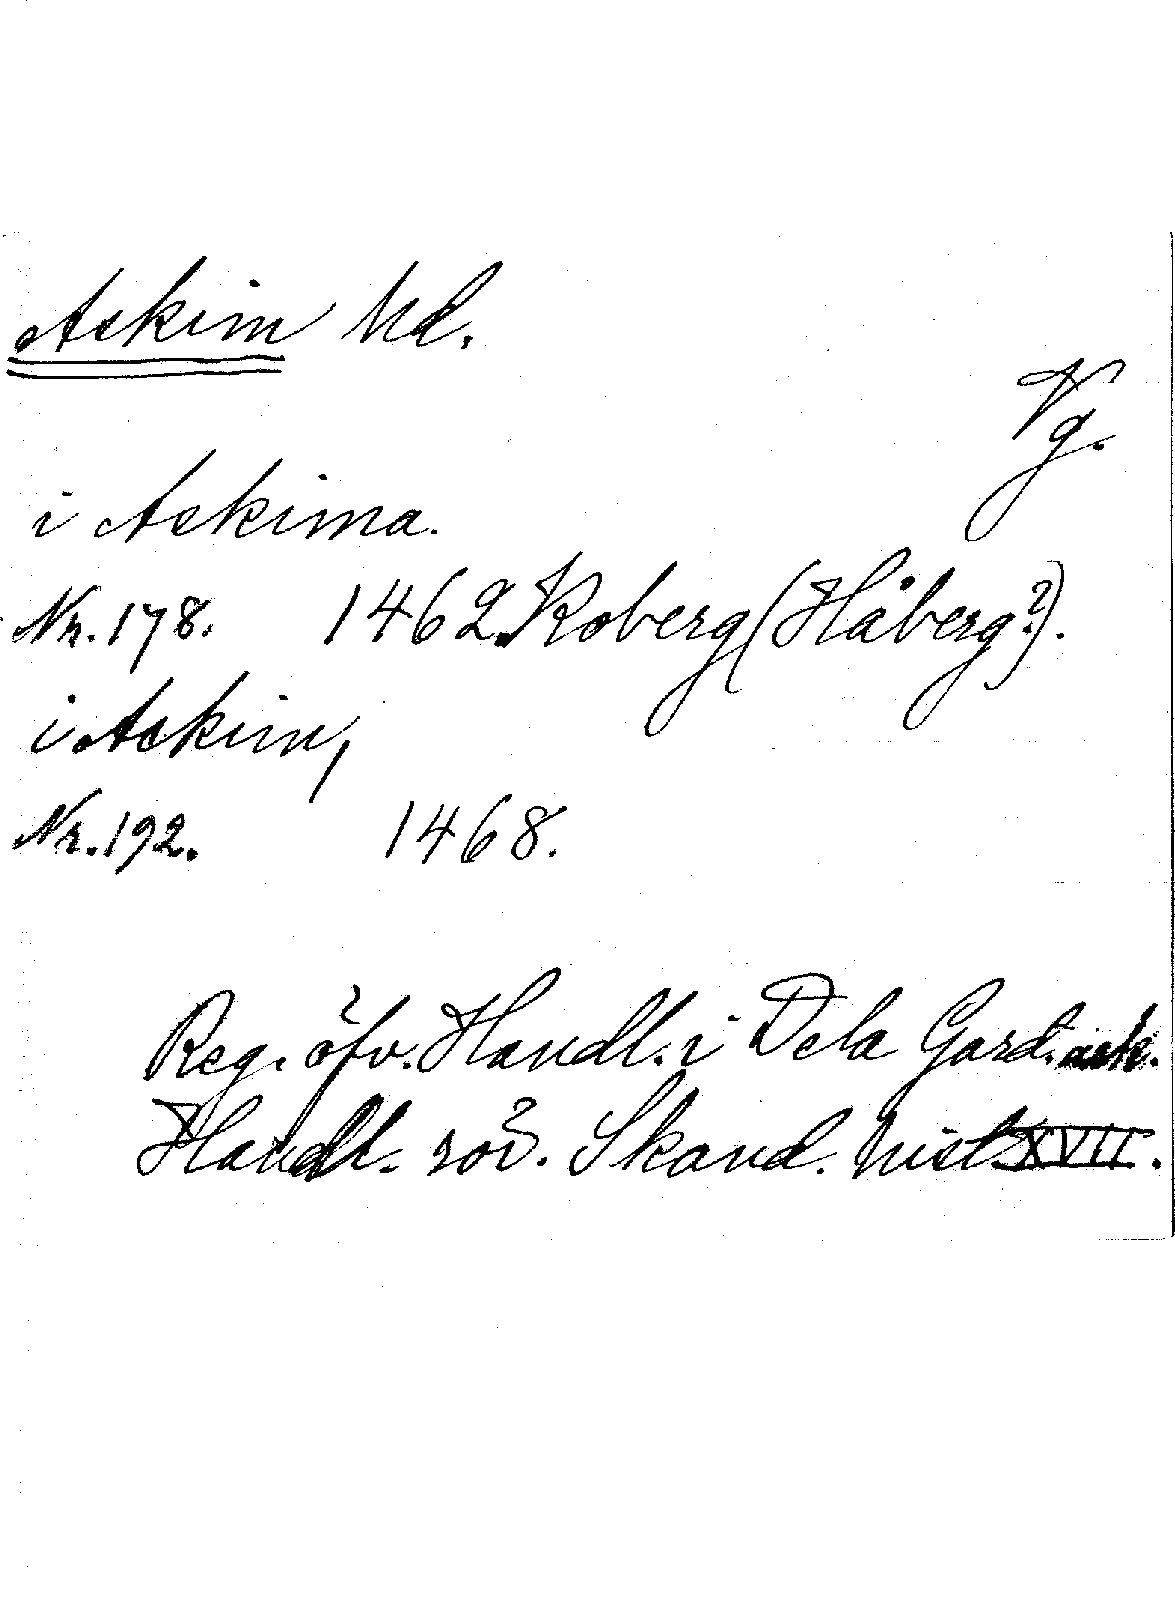 Askim hd.
Vg.
i Askima.
Nr. 178. 1462. Koberg (Håberg?).
i Askim,
Nr. 192. 1468.
Reg. öfv. Handl. i Dela Gard. ark.
Handl. rör. Skand. hist. XVII.